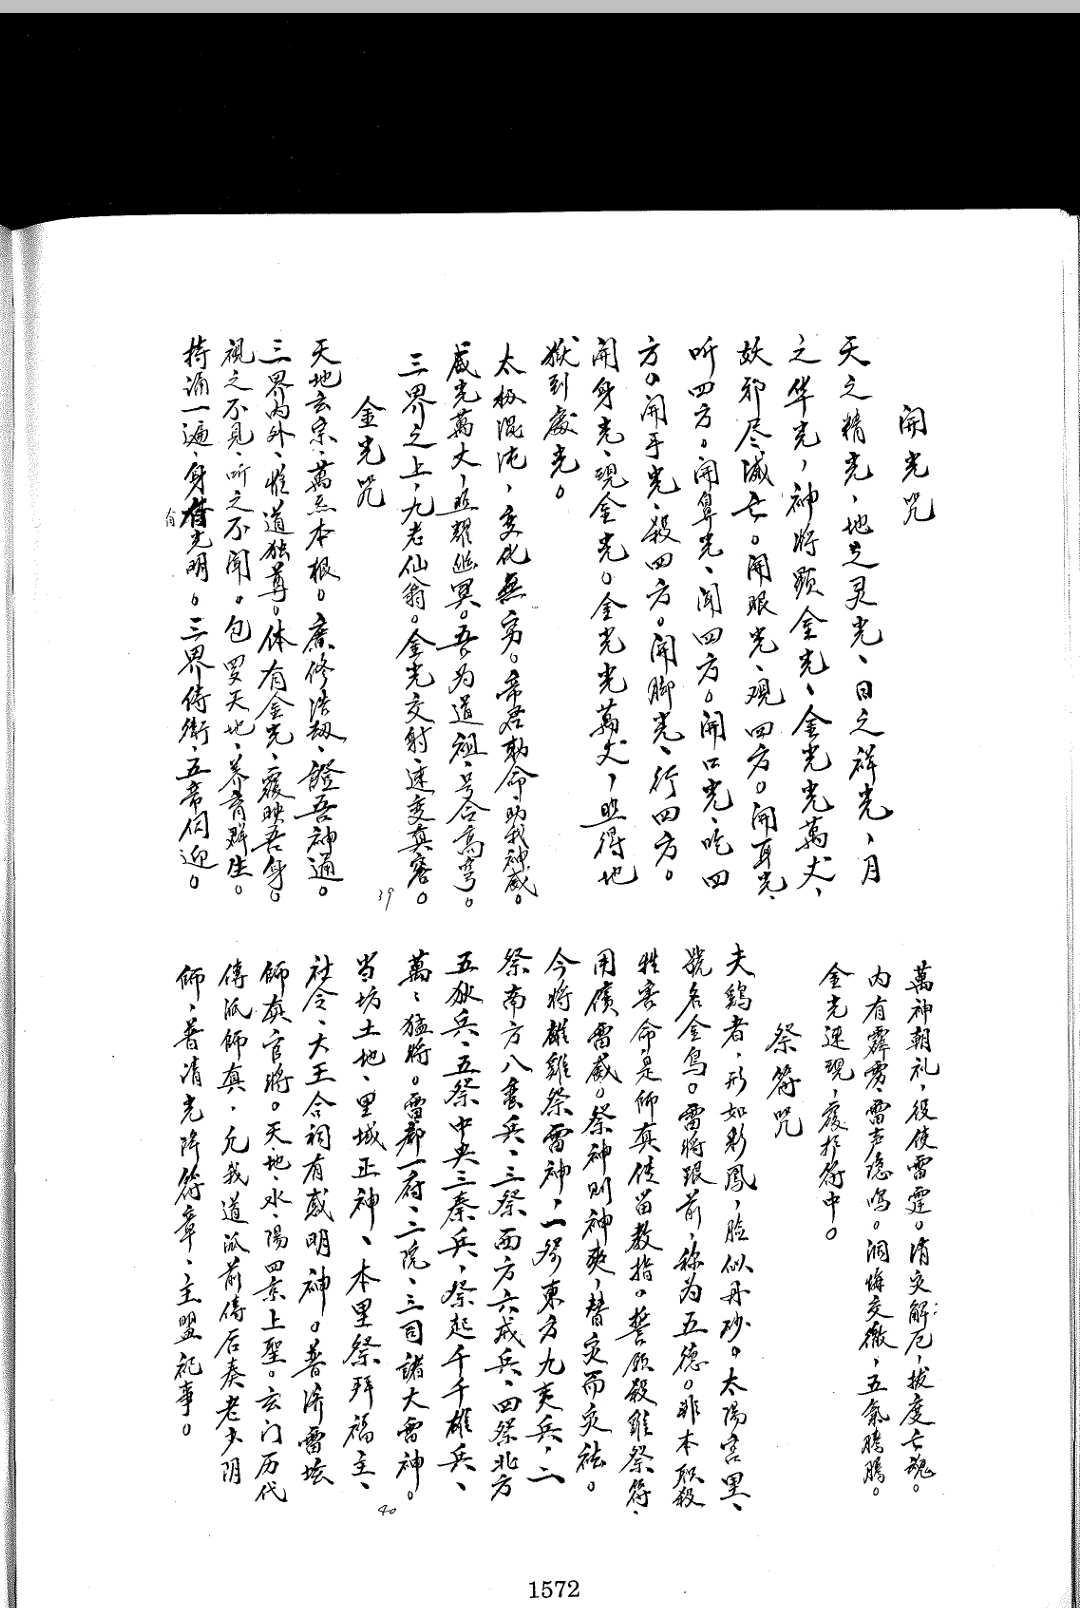 開光咒
天之精光、地之灵光、日之祥光，月
之华光，神將顕金光、金光光萬丈、
妖邪尽滅亡。開眼光、观四方。開耳光、
听四方。開鼻光、闻四方。開口光、吃四
方。開手光、殺四方。開脚光、行四方。
開身光、現金光。金光光萬丈，照得地
狱到處光。
太极混沌，变化無穷。帝君勅命、助我神威。
威光萬丈，照耀幽冥。吾为道祖、号合高穹。
三界之上，九老仙翁。金光交射、速变真容。
金光咒
天地玄宗、萬炁本根。廣修浩劫、證吾神通。
三界內外、惟道独尊。体有金光、覆映吾身。
視之不見、听之不闻。包罗天地、养育群生。
持诵一遍、身有光明。三界侍衛、五帝伺迎。
39
萬神朝礼，役使雷霆。消灾解厄，拔度亡魂。
内有霹雳、雷声隐鸣。洞悔交徹，五氣腾腾。
金光速現，覆护符中。
祭符咒
夫鷄者，形如彩鳳，脸似丹砂。太陽宫里、
號名金鸟。雷将跟前，称为五德。非本职殺
牲害命，是师真传留教指。誓願殺雞祭符、
用價雷威。祭神则神爽，替灾而灾祛。
今将雄雞祭雷神、一祭東方九夷兵、二
祭南方八蛮兵、三祭西方六戎兵、四祭北方
五狄兵、五祭中央三秦兵，祭起千千雄兵、
萬萬猛将。雷都一府、二院、三司諸大雷神。
当坊土地、里域正神、本里祭拜福主、
社令、大王合祠有感明神。普济雷坛
師真官将。天、地、水、陽四京上聖。玄门历代
傳派師真，允我道派前傳后奏老少阴
師，普清光降符章、主盟祀事。
40
1572